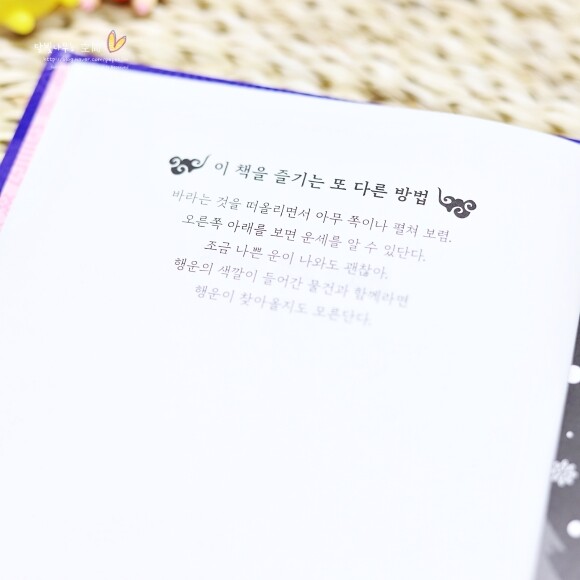 이 책을 즐기는 또 다른 방법
바라는 것을 떠올리면서 아무 쪽이나 펼쳐 보렴.
오른쪽 아래를 보면 운세를 알 수 있단다.
조금 나쁜 운이 나와도 괜찮아.
행운의 색깔이 들어간 물건과 함께라면
행운이 찾아올지도 모른단다.